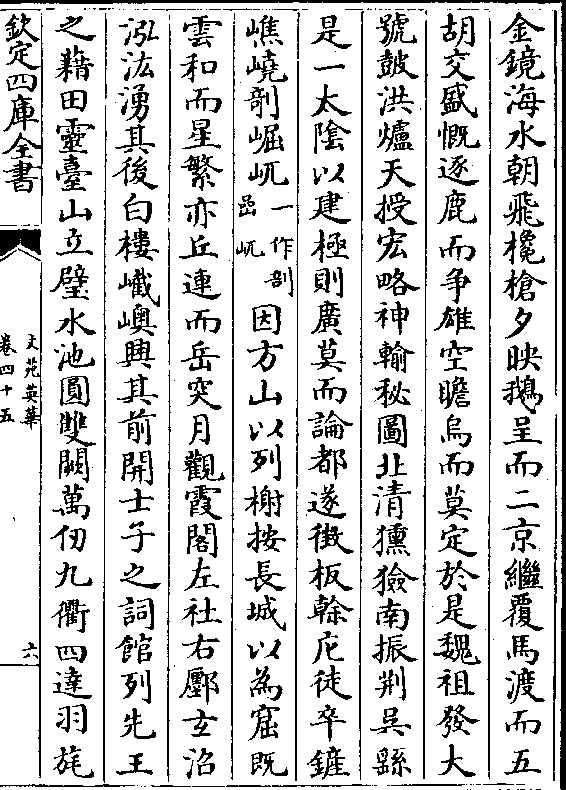 金鏡海水朝飛欃槍夕映鵝呈而二京繼覆馬渡而五
胡交盛慨逐鹿而争雄空瞻烏而莫定於是魏祖發大
號鼓洪爐天授宏略神輸秘圖北清獯獫南振荆吳繇
是一太陰以建極則廣莫而論都遂徴板榦庀徒卒鏟
嶕嶢剖崛屼一作剖嵒屼因方山以列榭按長城以為窟既
雲和而星繁亦丘連而岳突月觀霞閣左社右鄽玄沼
泓汯湧其後白樓巘㠗興其前開士子之詞館列先王
之藉田靈臺山立璧水池圓雙闕萬仞九衢四達羽旄
欽定四庫全書
文苑英華
卷四十五
六